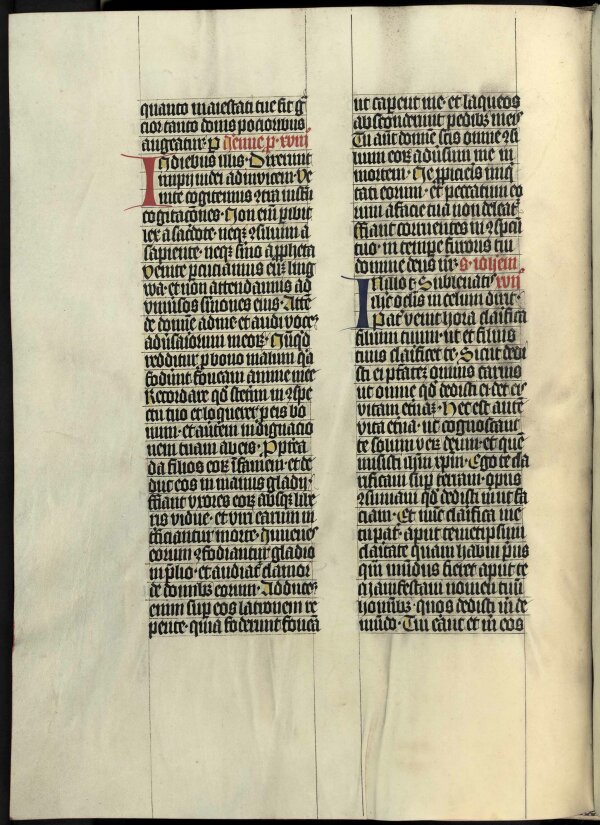 quanto maiestati tue fit g̃
cior tanto donis pocioribus
augeatur · P̱ Jeremie ꝓ · xviij
In diebus illis · Dixerunt
impij iudei adinuicem · Ve
nite cogitemus ꝯtra iustũ
cogitacõnes · Non em̃ ꝑibit
lex a sac̃dote · neqꝫ ꝯsilium a
sapiente · neqꝫ sm̃o a ꝓpheta
Venite percuciamus eũ ling
wa · et non attendamus ad
vniu̾sos sm̃ones eius · Atte
de domĩe ad me · et audi voceꝫ
adu̾saiorum meoꝝ · Nũqͥd
redditur ꝓ bono malum qͥa
foderũt foueam anime mee
Recordare qđ steterim in ꝯspe
ctu tuo et loquerer ꝓ eis bo
num · et au̾terem indignacio
nem tuam ab eis · Ꝓpterea
da filios eoꝝ ĩ famem · et de
duc eos in manus gladij ·
ffiant vxores eoꝝ absqꝫ libe
ris vidue · et viri earum in
terficiantur morte · Juuenes
eorum ꝯfodiantur gladio
in p̃lio · et audiat͛ clamor
de domibꝫ eorum · Adduces
enim suꝑ eos latronem re
pente · quia foderunt foueã
ut caperent me · et laqueos
absconderunt pedibꝫ meis
Tu aũt domĩe scis omne ꝯsi
lium eoꝝ adu̾sum me in
mortem · Ne ꝓpicieris iniqͥ
tati eorum · et peccatum eo
rum a facie tua non deleat͛
ffiant corruentes in ꝯspectu
tuo · in tempore furoris tui
domine deus nr̃ · S · iohem̃
In illo t̃ · Subleuatis xvij
iħc oculis in celum dixit ·
Pat̾ venit hora clarifica
filium tuum · ut et filius
tuus clarificet te · Sicut dedi
sti ei ptãtem omnis carnis
ut omne qđ dedisti ei det eis
vitam et̾nam · Hec est autẽ
vita et̾na · ut cognoscant
te solum veꝝ deum · et quẽ
misisti iħm xp̃m · Ego te cla
rificaui suꝑ terram · opus
ꝯsumaui qđ dedisti m̃ ut fa
ciam · Et nũc clarifica me
tu pat̾ · aput temetipsum
claritate quam habui prius
qm̃ mũdus fieret aput te
manifestaui nomen tuũ
hominibꝫ · quos dedisti m̃ de
mũdo · Tui erãnt et m̃ eos